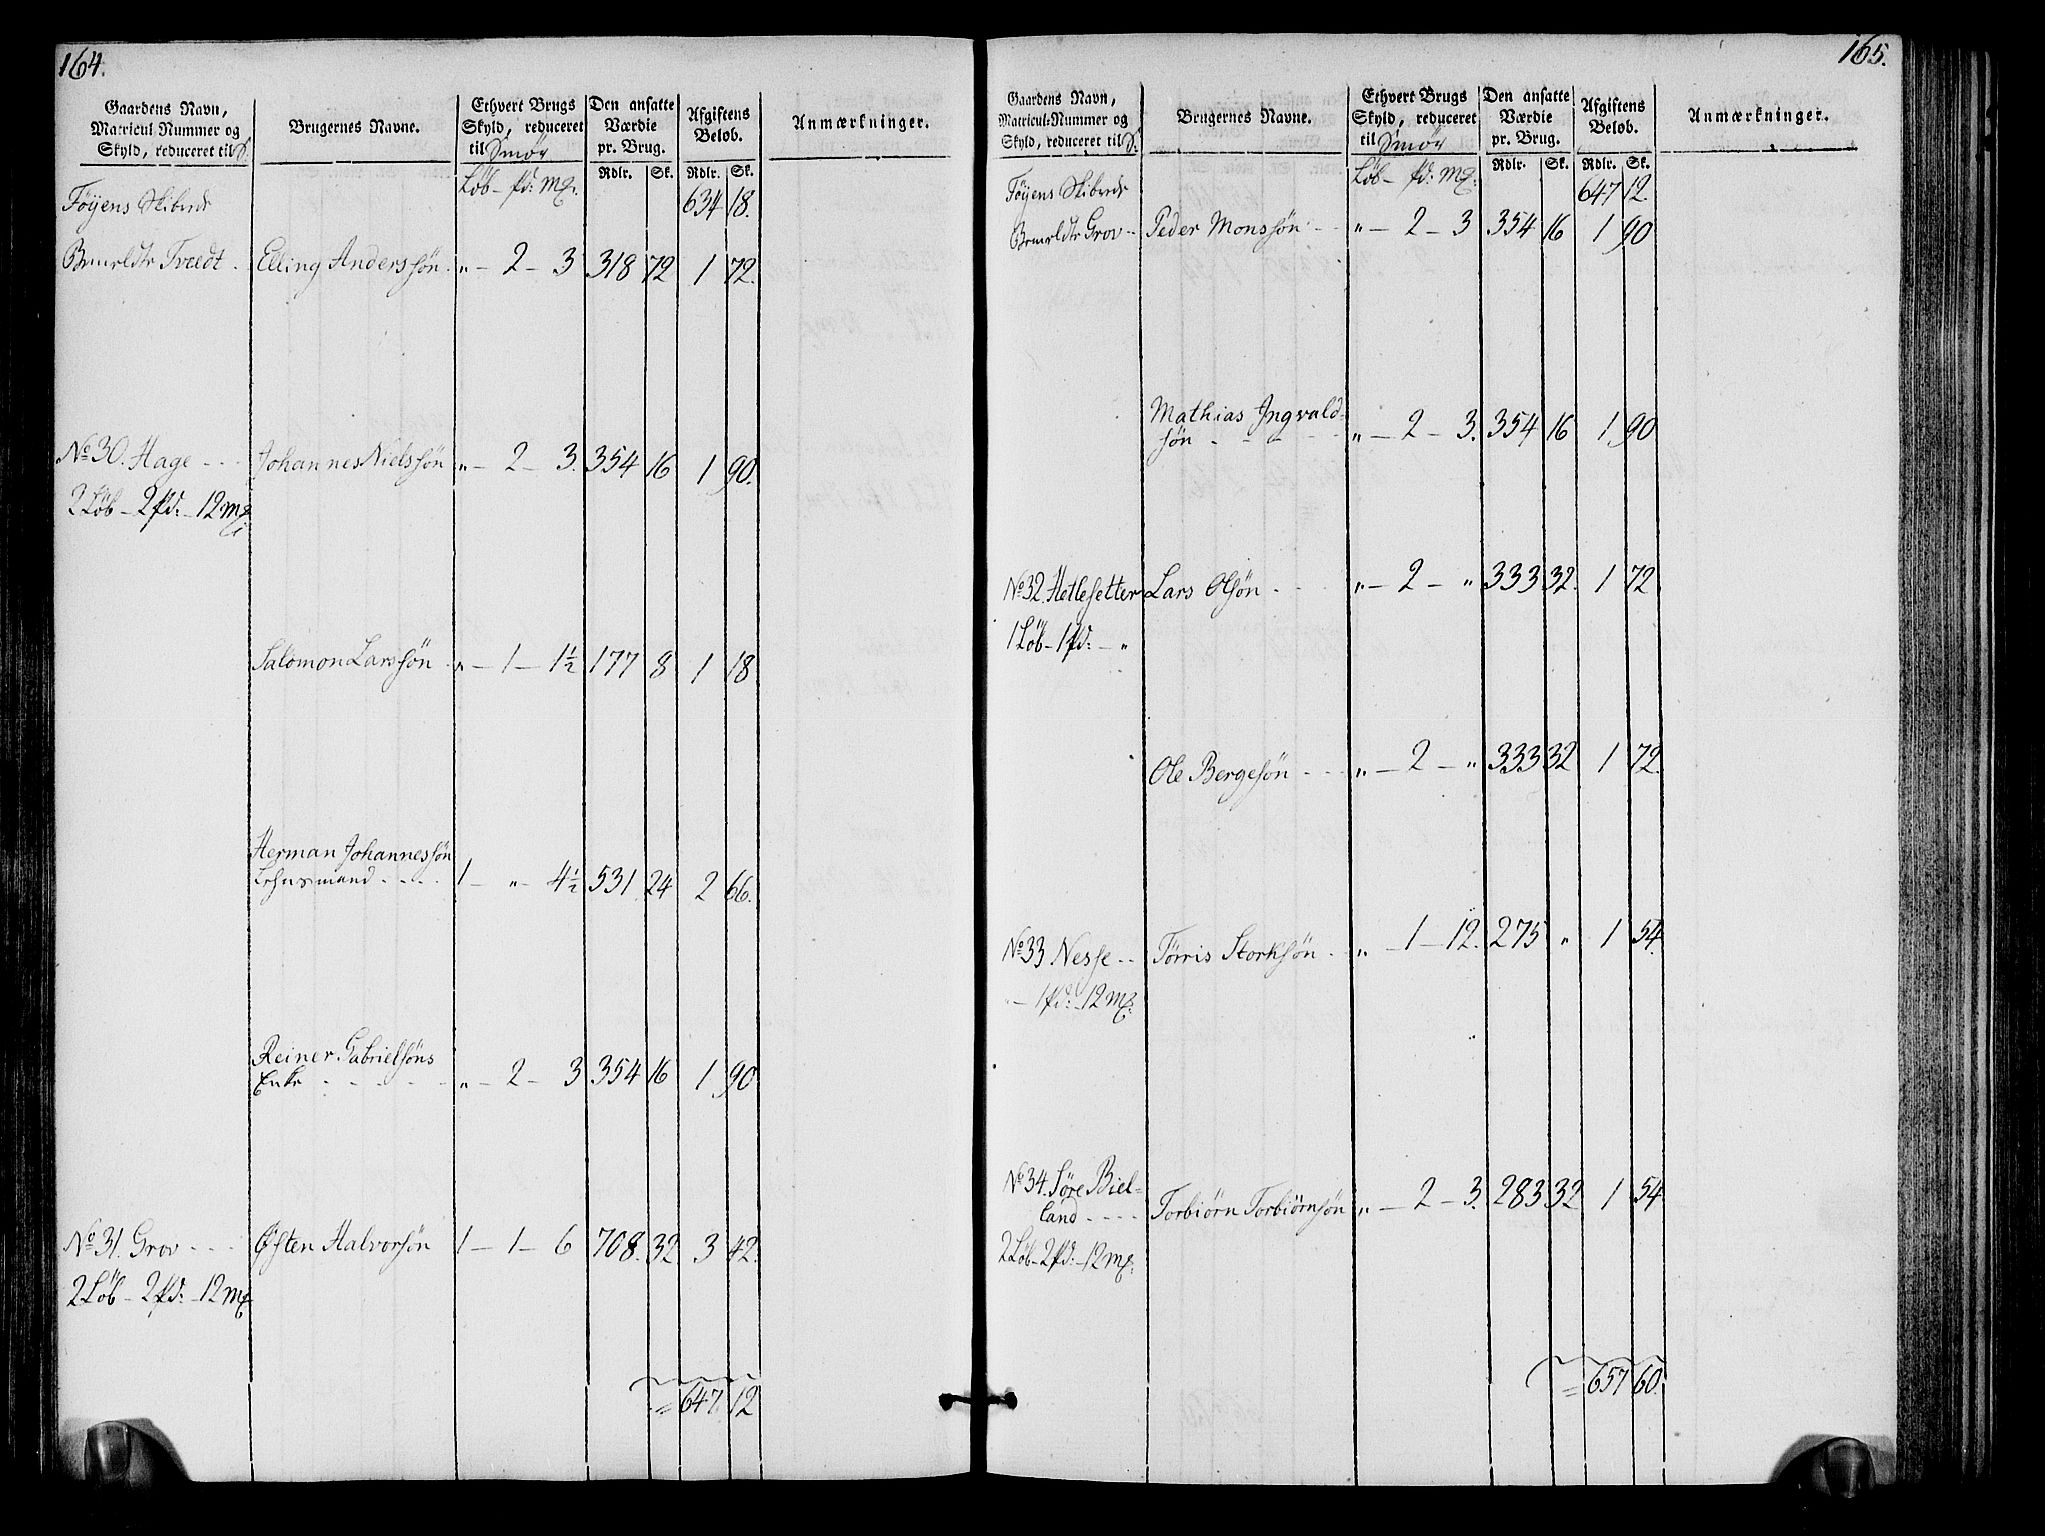 164.
Gaardens Navn, Matricul-Nummer og Skyld, reduceret til S.
Brugernes Navne.
Ethvert Brugs Skyld, reduceret til Smør
Den ansatte Værdie pr. Brug.
Afgiftens Beløb.
Anmærkninger.
Løb - pd: mƺ.
Rdlr. Sk. Rdlr. Sk.
Föyens Skibrede 634 18.
Tvedt . Elling Anderssön . „ - 2 - 3 318 72 1 72.
No 30. Hage - - - Johannes Nielssön „ - 2 - 3. 354 16 1 90.
2 Löb - 2 pd: - 12 mƺ
Salomon Larssön . „ - 1 - 1½ 177 8 1 18
Herman Johannessön
Lehnsmand - - - - 1 - „ - 4½ 531. 24 2 66.
Reiner Gabrielsöns
Enke - - - - - „ - 2 - 3. 354 16 1 90
No 31. Grov - - - Östen Halvorsön 1 - 1 - 6 708. 32. 3 42.
2 Löb - 2 pd: - 12 mƺ
= 647. 12
165.
Gaardens Navn, Matricul-Nummer og Skyld, reduceret til S.
Brugernes Navne.
Ethvert Brugs Skyld, reduceret til Smør
Den ansatte Værdie pr. Brug.
Afgiftens Beløb.
Anmærkninger.
Løb - pd: mƺ.
Rdlr. Sk. Rdlr. Sk.
Föyens Skibrede 647 12.
Grov - - Peder Monssön - - „ - 2 - 3 354 16 1 90
Mathias Ingvald-
sön - - - - - „ - 2 - 3. 354 16 1 90
No 32. Hetlesetter Lars Olsön - - - „ - 2 - „ 333 32. 1 72.
1 Löb - 1 pd: - „
Ole Bergesön - - - „ - 2 - „ 333 32 1 72.
No 33 Nesse - - Törris Storksön . „ - 1 - 12. 275 „ 1 54.
„ - 1 pd: - 12 mƺ.
No 34. Söre Biel-
land - - - - Torbiörn Torbiörnsön „ - 2 - 3. 283 32 1 54
2 Löb - 2 pd: - 12 mƺ.
= 657 60.